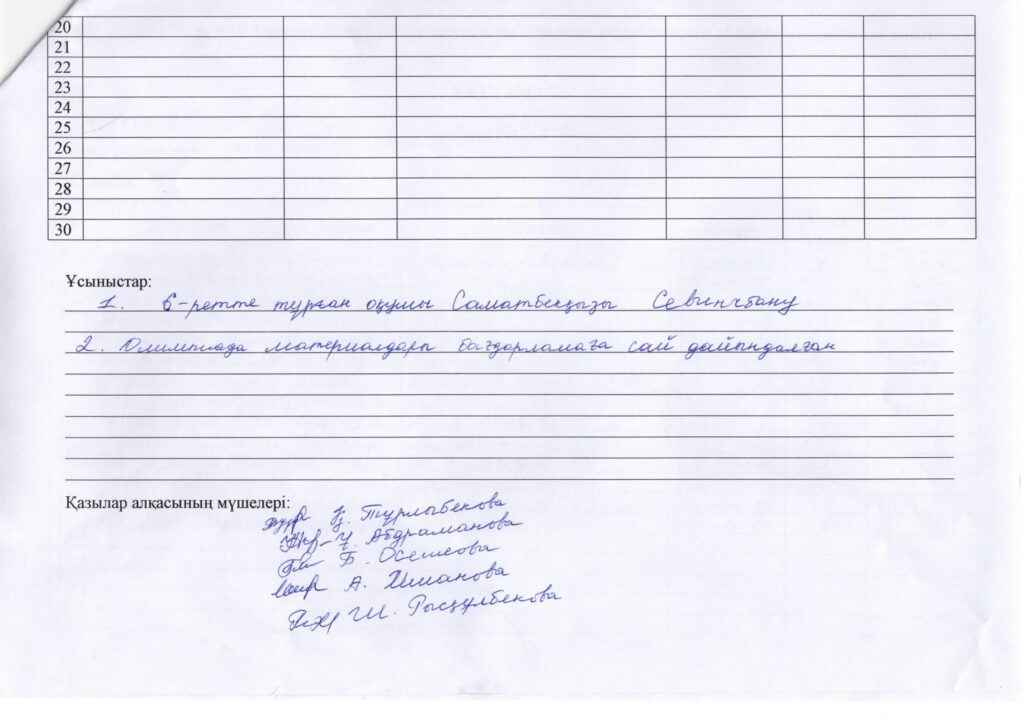 20
21
22
23
24
25
26
27
28
29
30
Ұсыныстар:
1. 6-ретте тұрған оқушы Саматбекқызы Севинчбану
2. Олимпиада материалдары бағдарламаға сай дайындалған
Қазылар алқасының мүшелері:
Тұрлыбекова
Абдраманова
Б.
А. Иманова
Ш. Рысқұлбекова